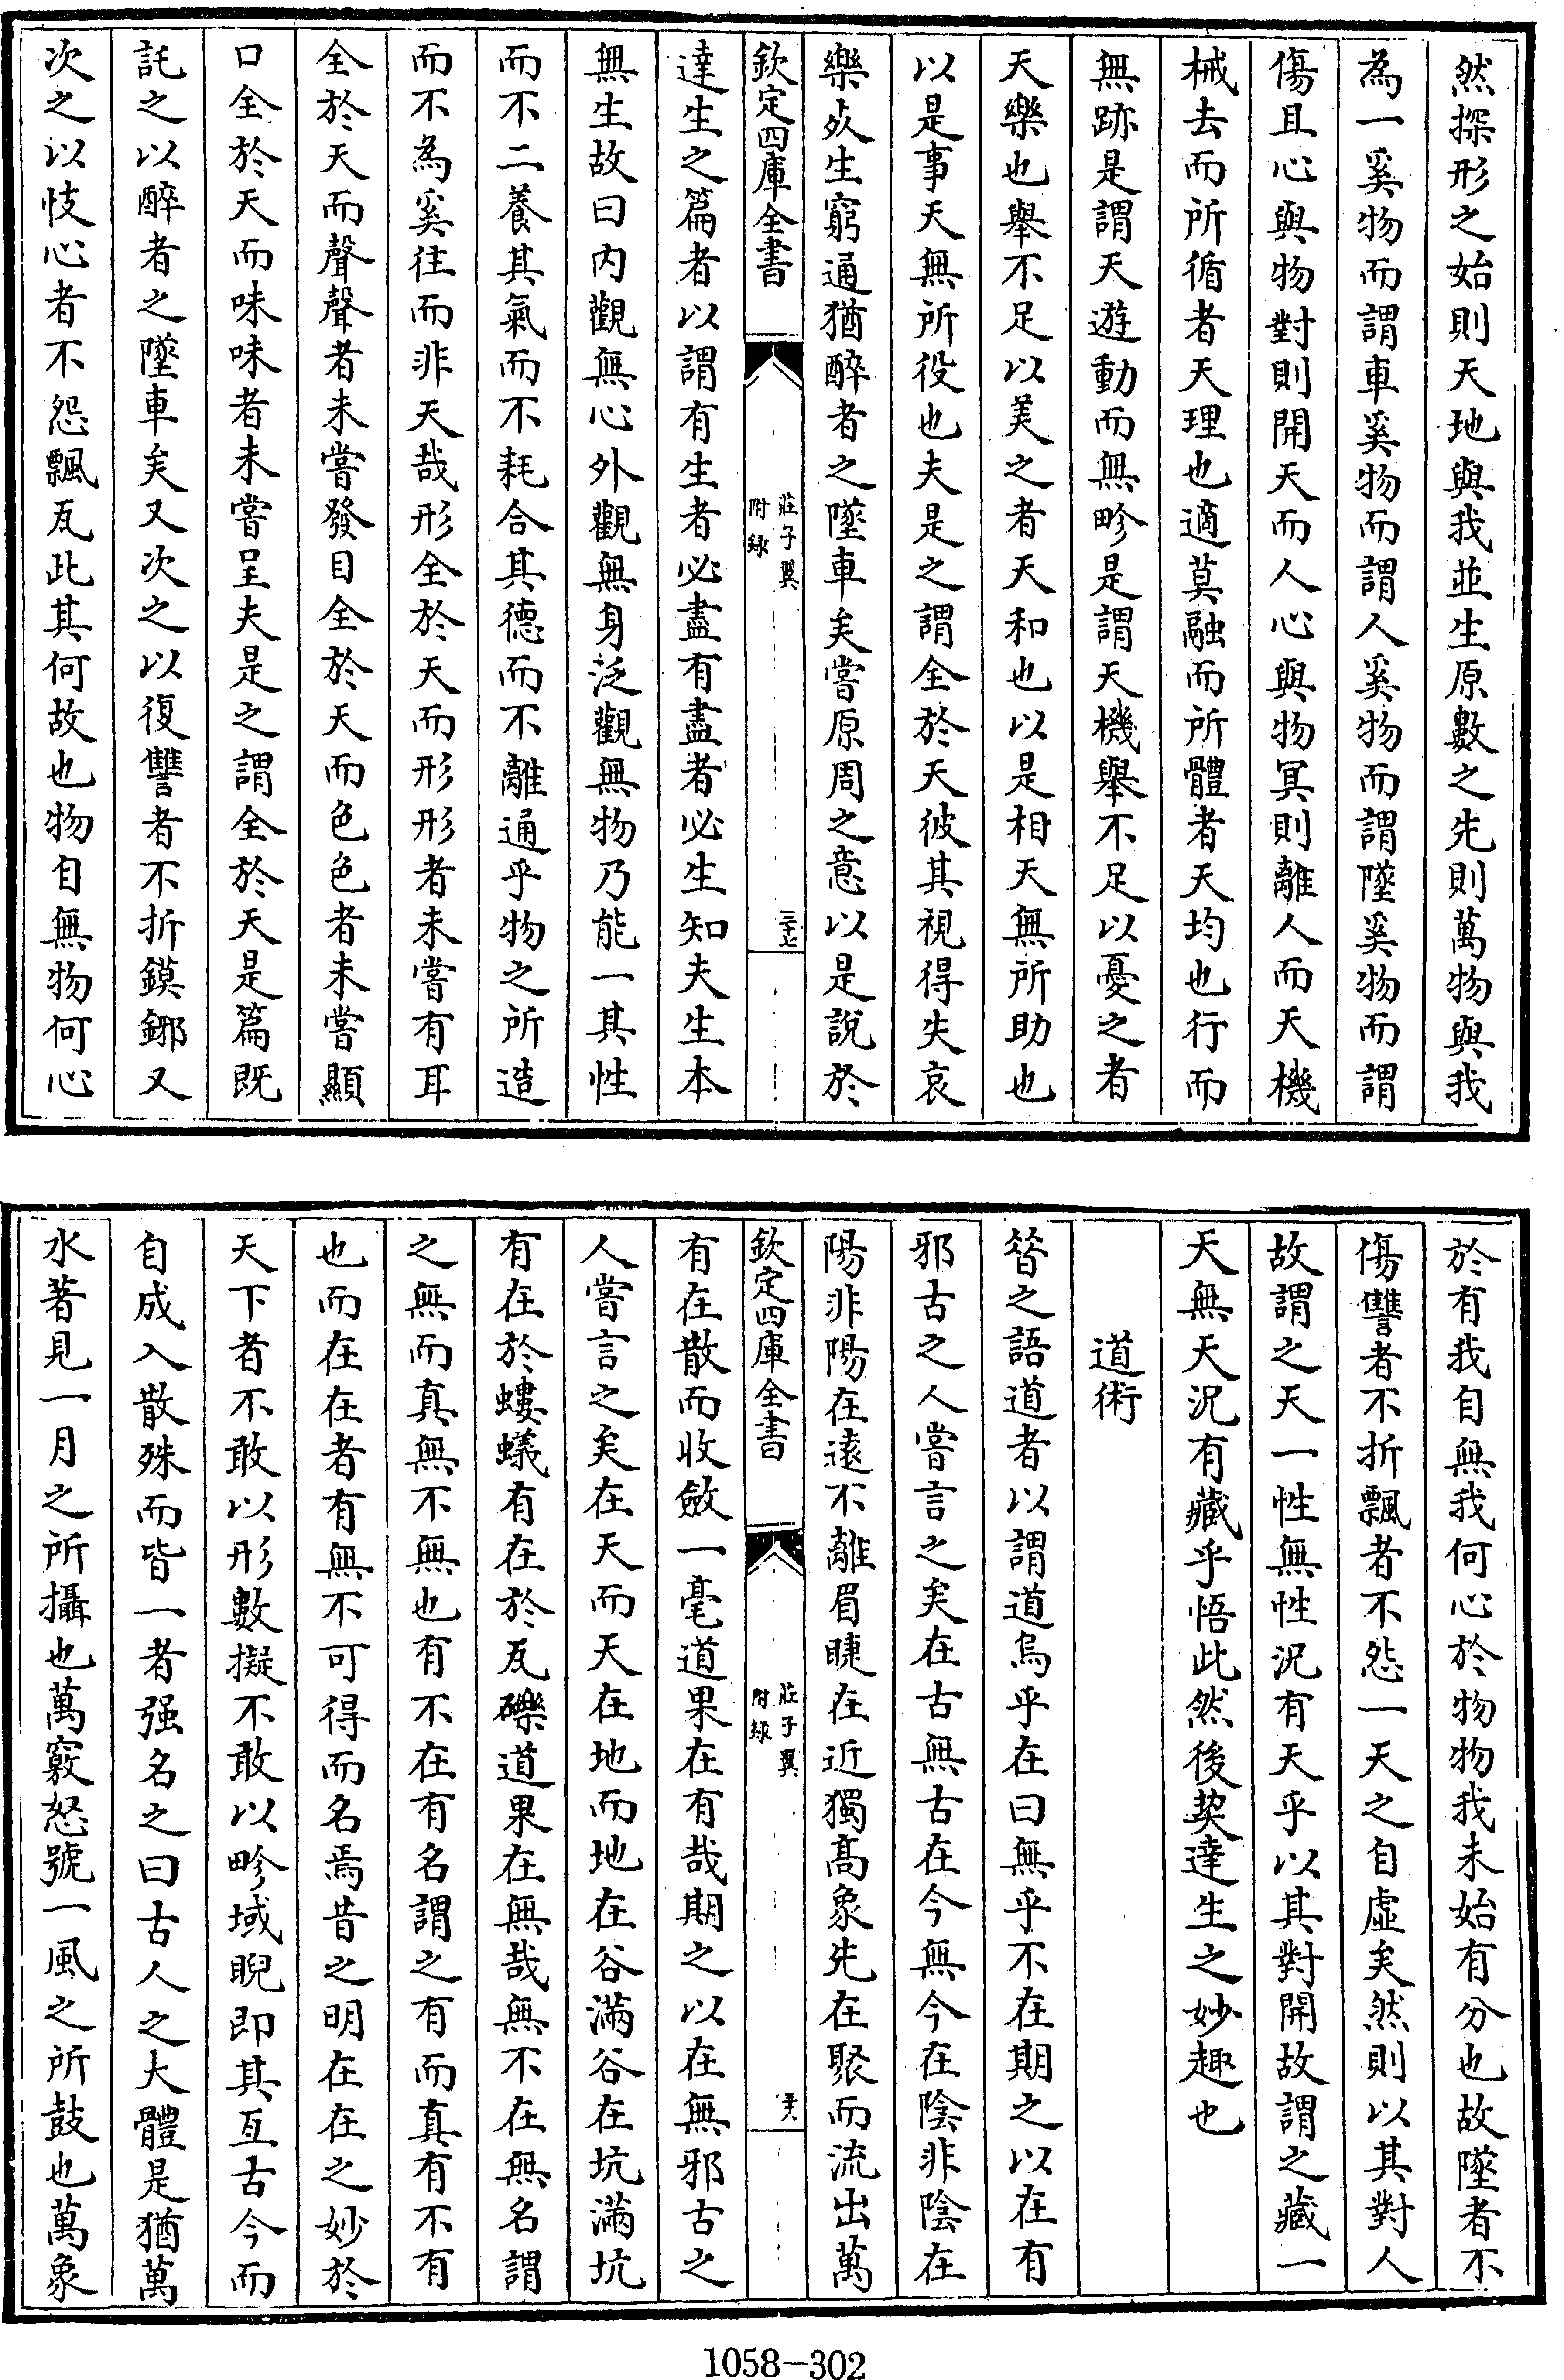 然探形之始則天地與我並生原數之先則萬物與我
為一奚物而謂車奚物而謂人奚物而謂墜奚物而謂
傷且心與物對則開天而人心與物冥則離人而天機
械去而所循者天理也適莫融而所體者天均也行而
無跡是謂天遊動而無畛是謂天機舉不足以憂之者
天樂也舉不足以美之者天和也以是相天無所助也
以是事天無所役也夫是之謂全於天彼其視得失哀
樂死生窮通猶醉者之墜車矣嘗原周之意以是說於
欽定四庫全書
莊子翼
附錄
三十七
達生之篇者以謂有生者必盡有盡者必生知夫生本
無生故曰内觀無心外觀無身泛觀無物乃能一其性
而不二養其氣而不耗合其德而不離通乎物之所造
而不為奚往而非天哉形全於天而形形者未嘗有耳
全於天而聲聲者未嘗發目全於天而色色者未嘗顯
口全於天而味味者未嘗呈夫是之謂全於天是篇既
託之以醉者之墜車矣又次之以復讐者不折鏌鋣又
次之以忮心者不怨飄瓦此其何故也物自無物何心
於有我自無我何心於物物我未始有分也故墜者不
傷讐者不折飄者不怨一天之自虛矣然則以其對人
故謂之天一性無性況有天乎以其對開故謂之藏一
天無天況有藏乎悟此然後契達生之妙趣也
道術
昝之語道者以謂道烏乎在曰無乎不在期之以在有
邪古之人嘗言之矣在古無古在今無今在陰非陰在
陽非陽在遠不離眉睫在近獨高象先在聚而流出萬
欽定四庫全書
莊子翼
附錄
三十八
有在散而收斂一毫道果在有哉期之以在無邪古之
人嘗言之矣在天而天在地而地在谷滿谷在坑滿坑
有在於螻蟻有在於瓦礫道果在無哉無不在無名謂
之無而真無不無也有不在有名謂之有而真有不有
也而在在者有無不可得而名焉昔之明在在之妙於
天下者不敢以形數擬不敢以畛域睨即其亙古今而
自成入散殊而皆一者强名之曰古人之大體是猶萬
水著見一月之所攝也萬竅怒號一風之所鼓也萬象
1058-302